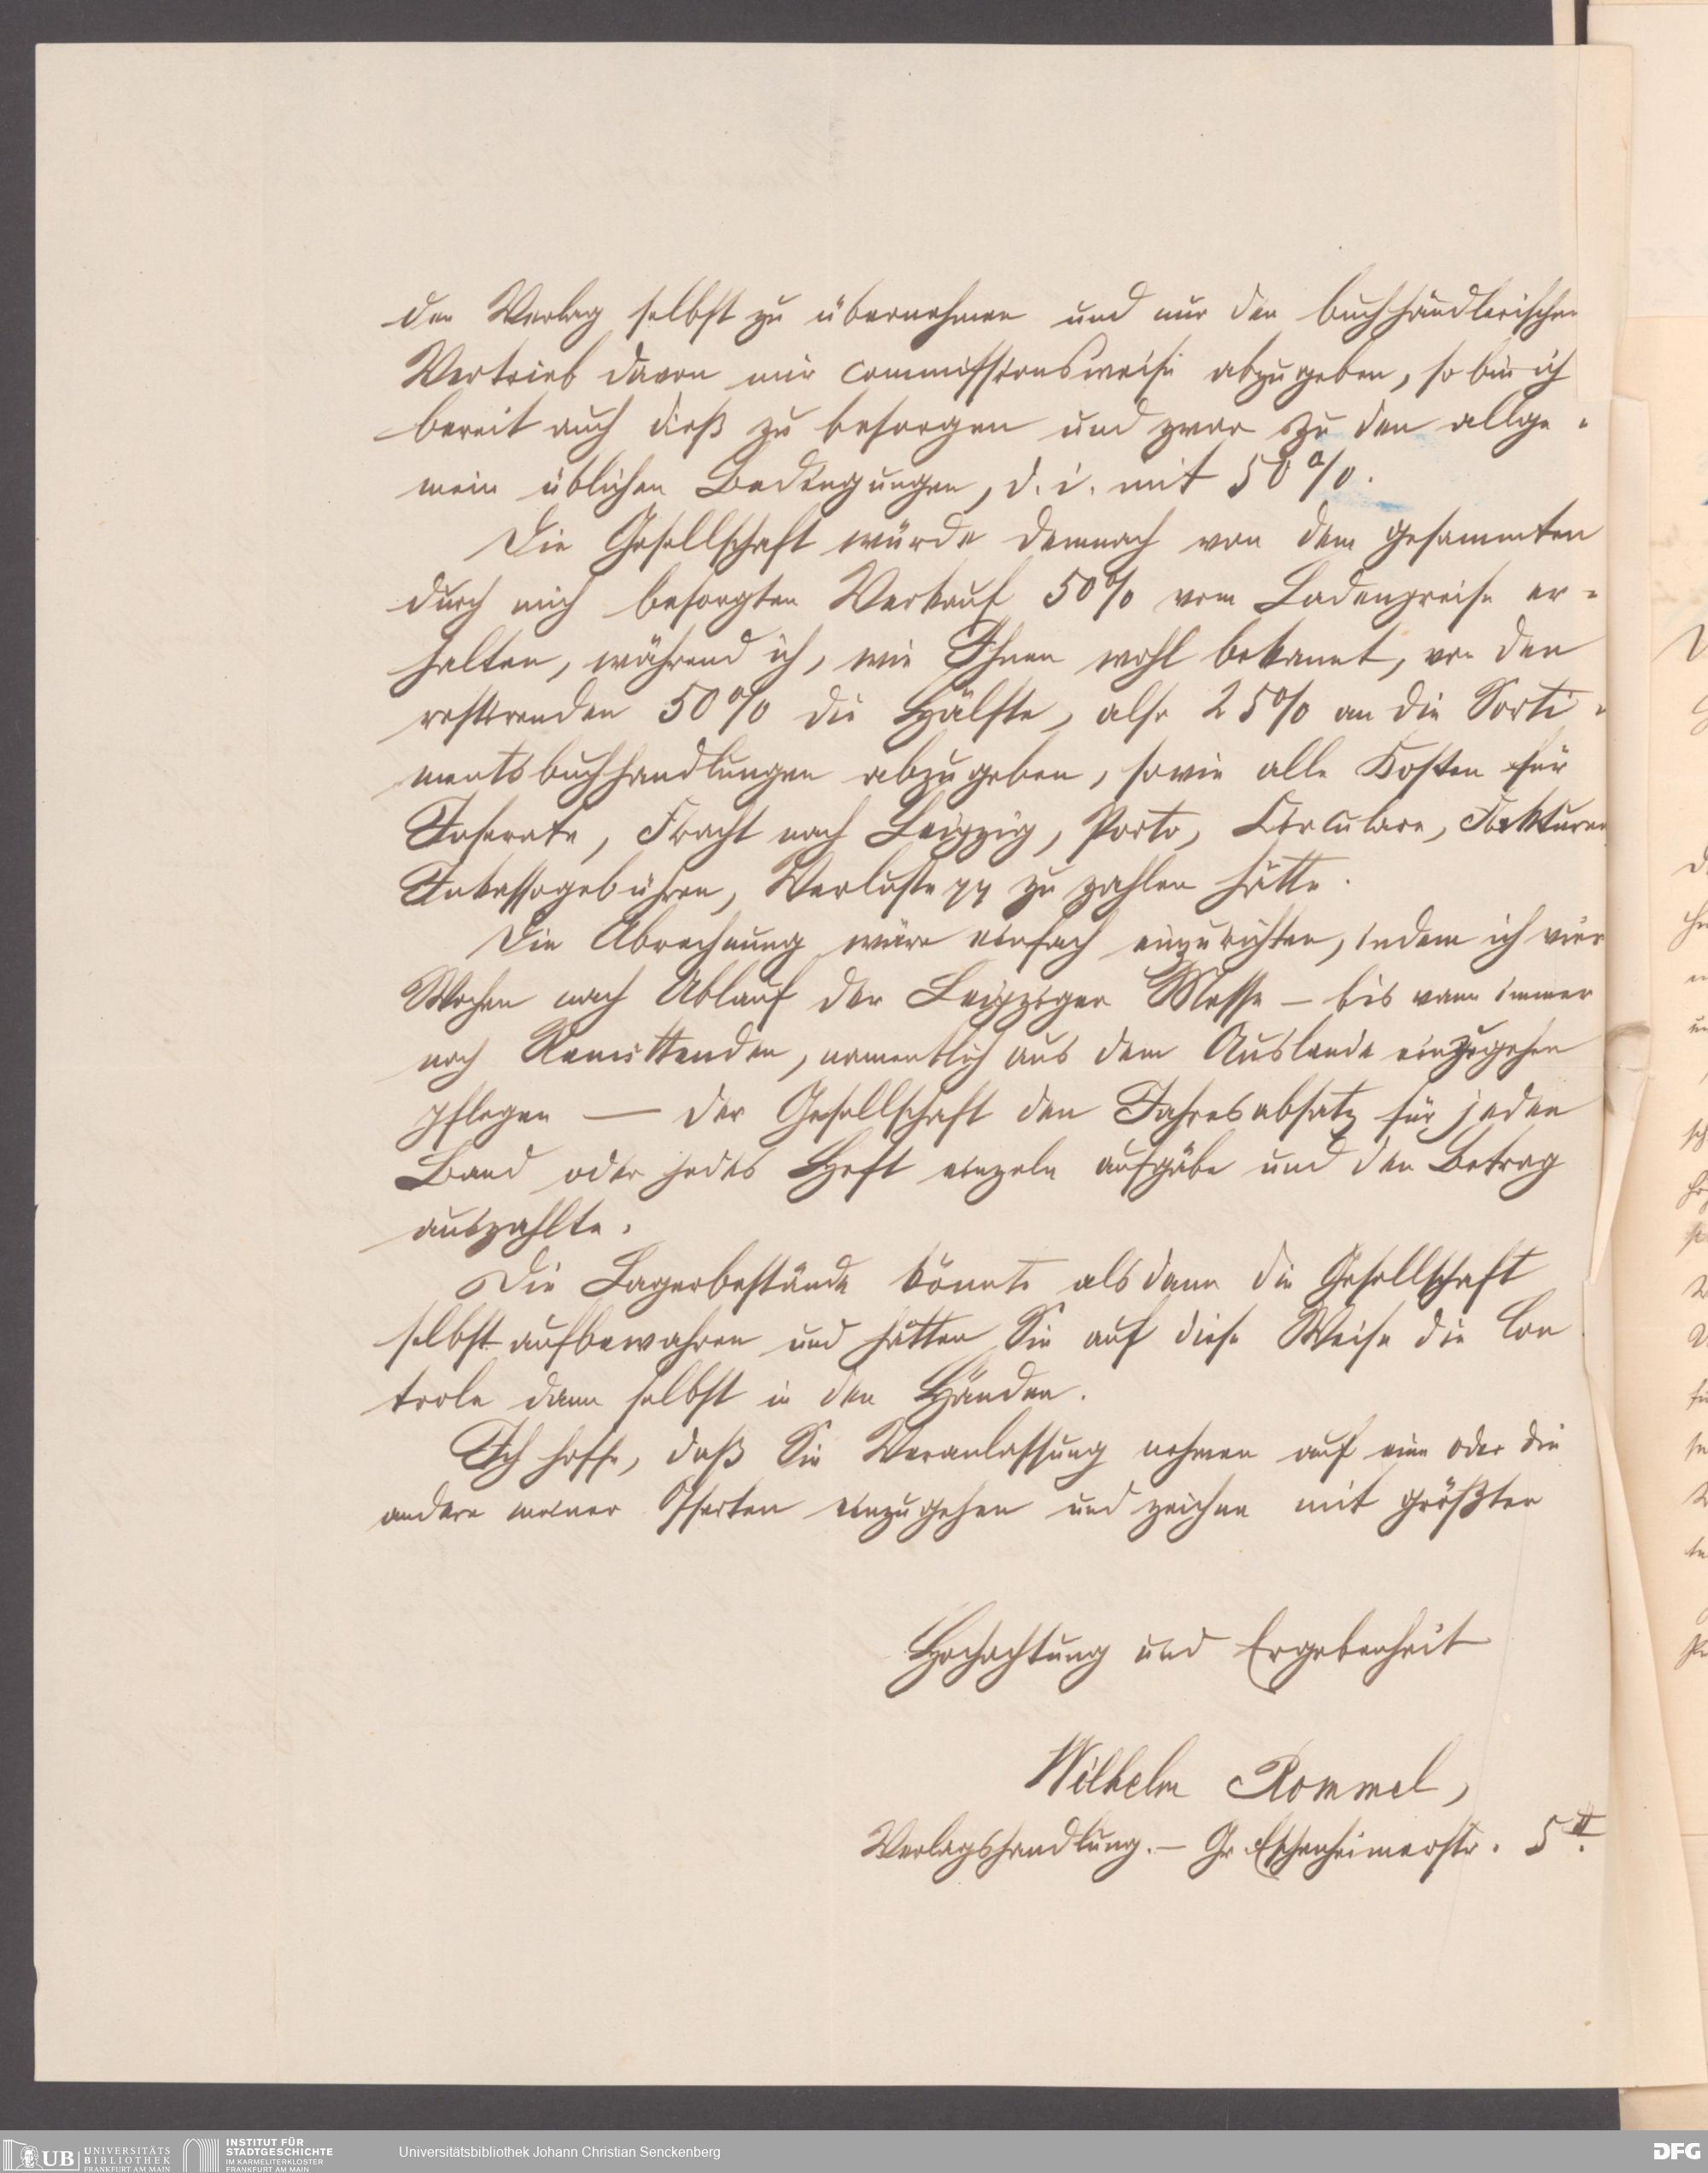 den Verlag selbst zu übernehmen und nur den buchhändlerischen
Vertrieb davon mir commissionsweise abzugeben, so bin ich
bereit auch dieß zu besorgen und zwar zu den allge-
mein üblichen Bedingungen, d. i. mit 50%.
Die Gesellschaft würde demnach von dem gesammten
durch mich besorgten Verkauf 50% vom Ladenpreise er-
halten, während ich, wie Ihnen wohl bekannt, von den
restirenden 50% die Hälfte, also 25% an die Sorti-
mentsbuchhandlungen abzugeben, sowie alle Kosten für
Inserate, Fracht nach Leipzig, Porto, Circulare, Fakturen
Inkassogebühren, Verluste pp zu zahlen hätte.
Die Abrechnung wäre einfach einzurichten, indem ich vier
Wochen nach Ablauf der Leipziger Messe — bis wann immer
noch Remittenden, namentlich aus dem Auslande einzugehen
pflegen — der Gesellschaft den Jahresabsatz für jeden
Band oder jedes Heft einzeln aufgäbe und den Betrag
auszahlte.
Die Lagerbestände könnte alsdann die Gesellschaft
selbst aufbewahren und hätten Sie auf diese Weise die Con
trole dann selbst in den Händen.
Ich hoffe, daß Sie Veranlassung nehmen auf eine oder die
andere meiner Offerten einzugehen und zeichne mit größter
Hochachtung und Ergebenheit
Wilhelm Rommel,
Verlagshandlung. — Gr. Eschenheimerstr. 5 II.
UB UNIVERSITÄTS
BIBLIOTHEK
FRANKFURT AM MAIN
INSTITUT FÜR
STADTGESCHICHTE
IM KARMELITERKLOSTER
FRANKFURT AM MAIN
Universitätsbibliothek Johann Christian Senckenberg
DFG